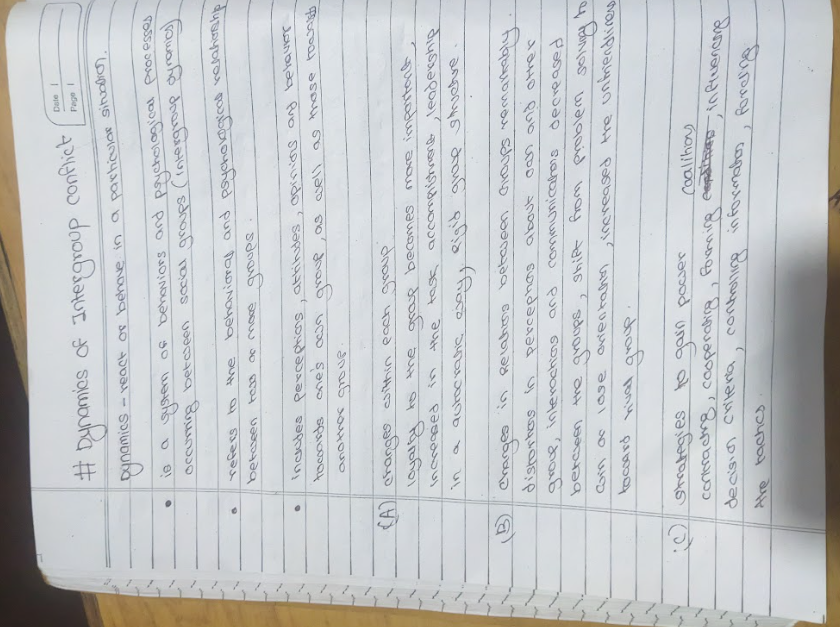 Date 1
Page 1
# Dynamics of Intergroup conflict
Dynamics - react or behave in a particular situation.
• is a system of behaviors and psychological processes
occurring between social groups (intergroup dynamics)
• refers to the behavioral and psychological relationship
between two or more groups.
• includes perceptions, attitudes, opinions and behavior
towards one's own group, as well as those towards
another group.
(A) changes within each group
loyalty to the group becomes more important,
increased in the task accomplishment, leadership
in a autocratic way, rigid group structure.
(B) changes in relations between groups remarkably.
distortions in perceptions about own and other
group, interactions and communications decreased
between the groups, shift from problem solving to
win or lose orientation, increased the unfriendliness
toward rival group.
(C) strategies to gain power
contracting, cooperating, forming coalitions, influencing
decision criteria, controlling information, forcing
the tactics.